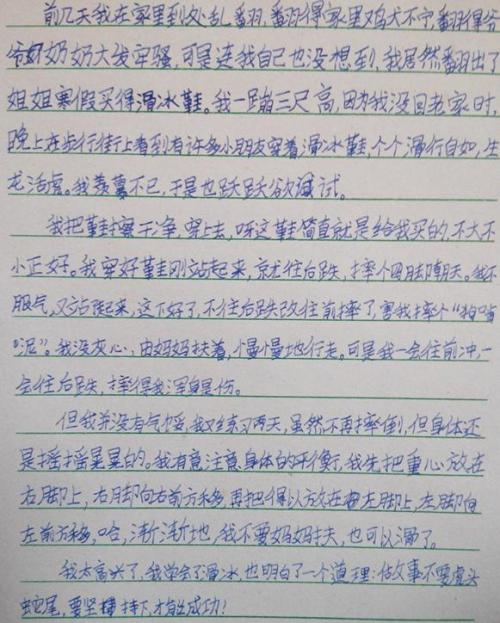 前几天我在家里到处乱翻,翻得家里鸡犬不宁,翻得爷
爷奶奶大发牢骚,可是连我自己也没想到,我居然翻出了
姐姐寒假买得滑冰鞋。我一蹦三尺高,因为我没回老家时,
晚上在步行街上看到有许多小朋友穿着滑冰鞋,个个滑行自如,生
龙活虎。我羡慕不已,于是也跃跃欲试。
我把鞋擦干净,穿上去,呀这鞋简直就是给我买的,不大不
小正好。我穿好鞋刚站起来,就往后跌,摔个四脚朝天。我不
服气,又站起来,这下好了,不往后跌改往前摔了,害我摔个“狗啃
泥”。我没灰心,由妈妈扶着,慢慢地行走。可是我一会往前冲,一
会往后跌,摔得我浑身是伤。
但我并没有气馁,我又练习两天,虽然不再摔倒,但身体还
是摇摇晃晃的。我有意注意身体的平衡,我先把重心放在
右脚上,右脚向右前方移,再把得以放在左脚上,左脚向
左前方移,哈,渐渐地,我不要妈妈扶,也可以滑了。
我太高兴了,我学会了滑冰,也明白了一个道理:做事不要虎头
蛇尾,要坚持下,才能成功!